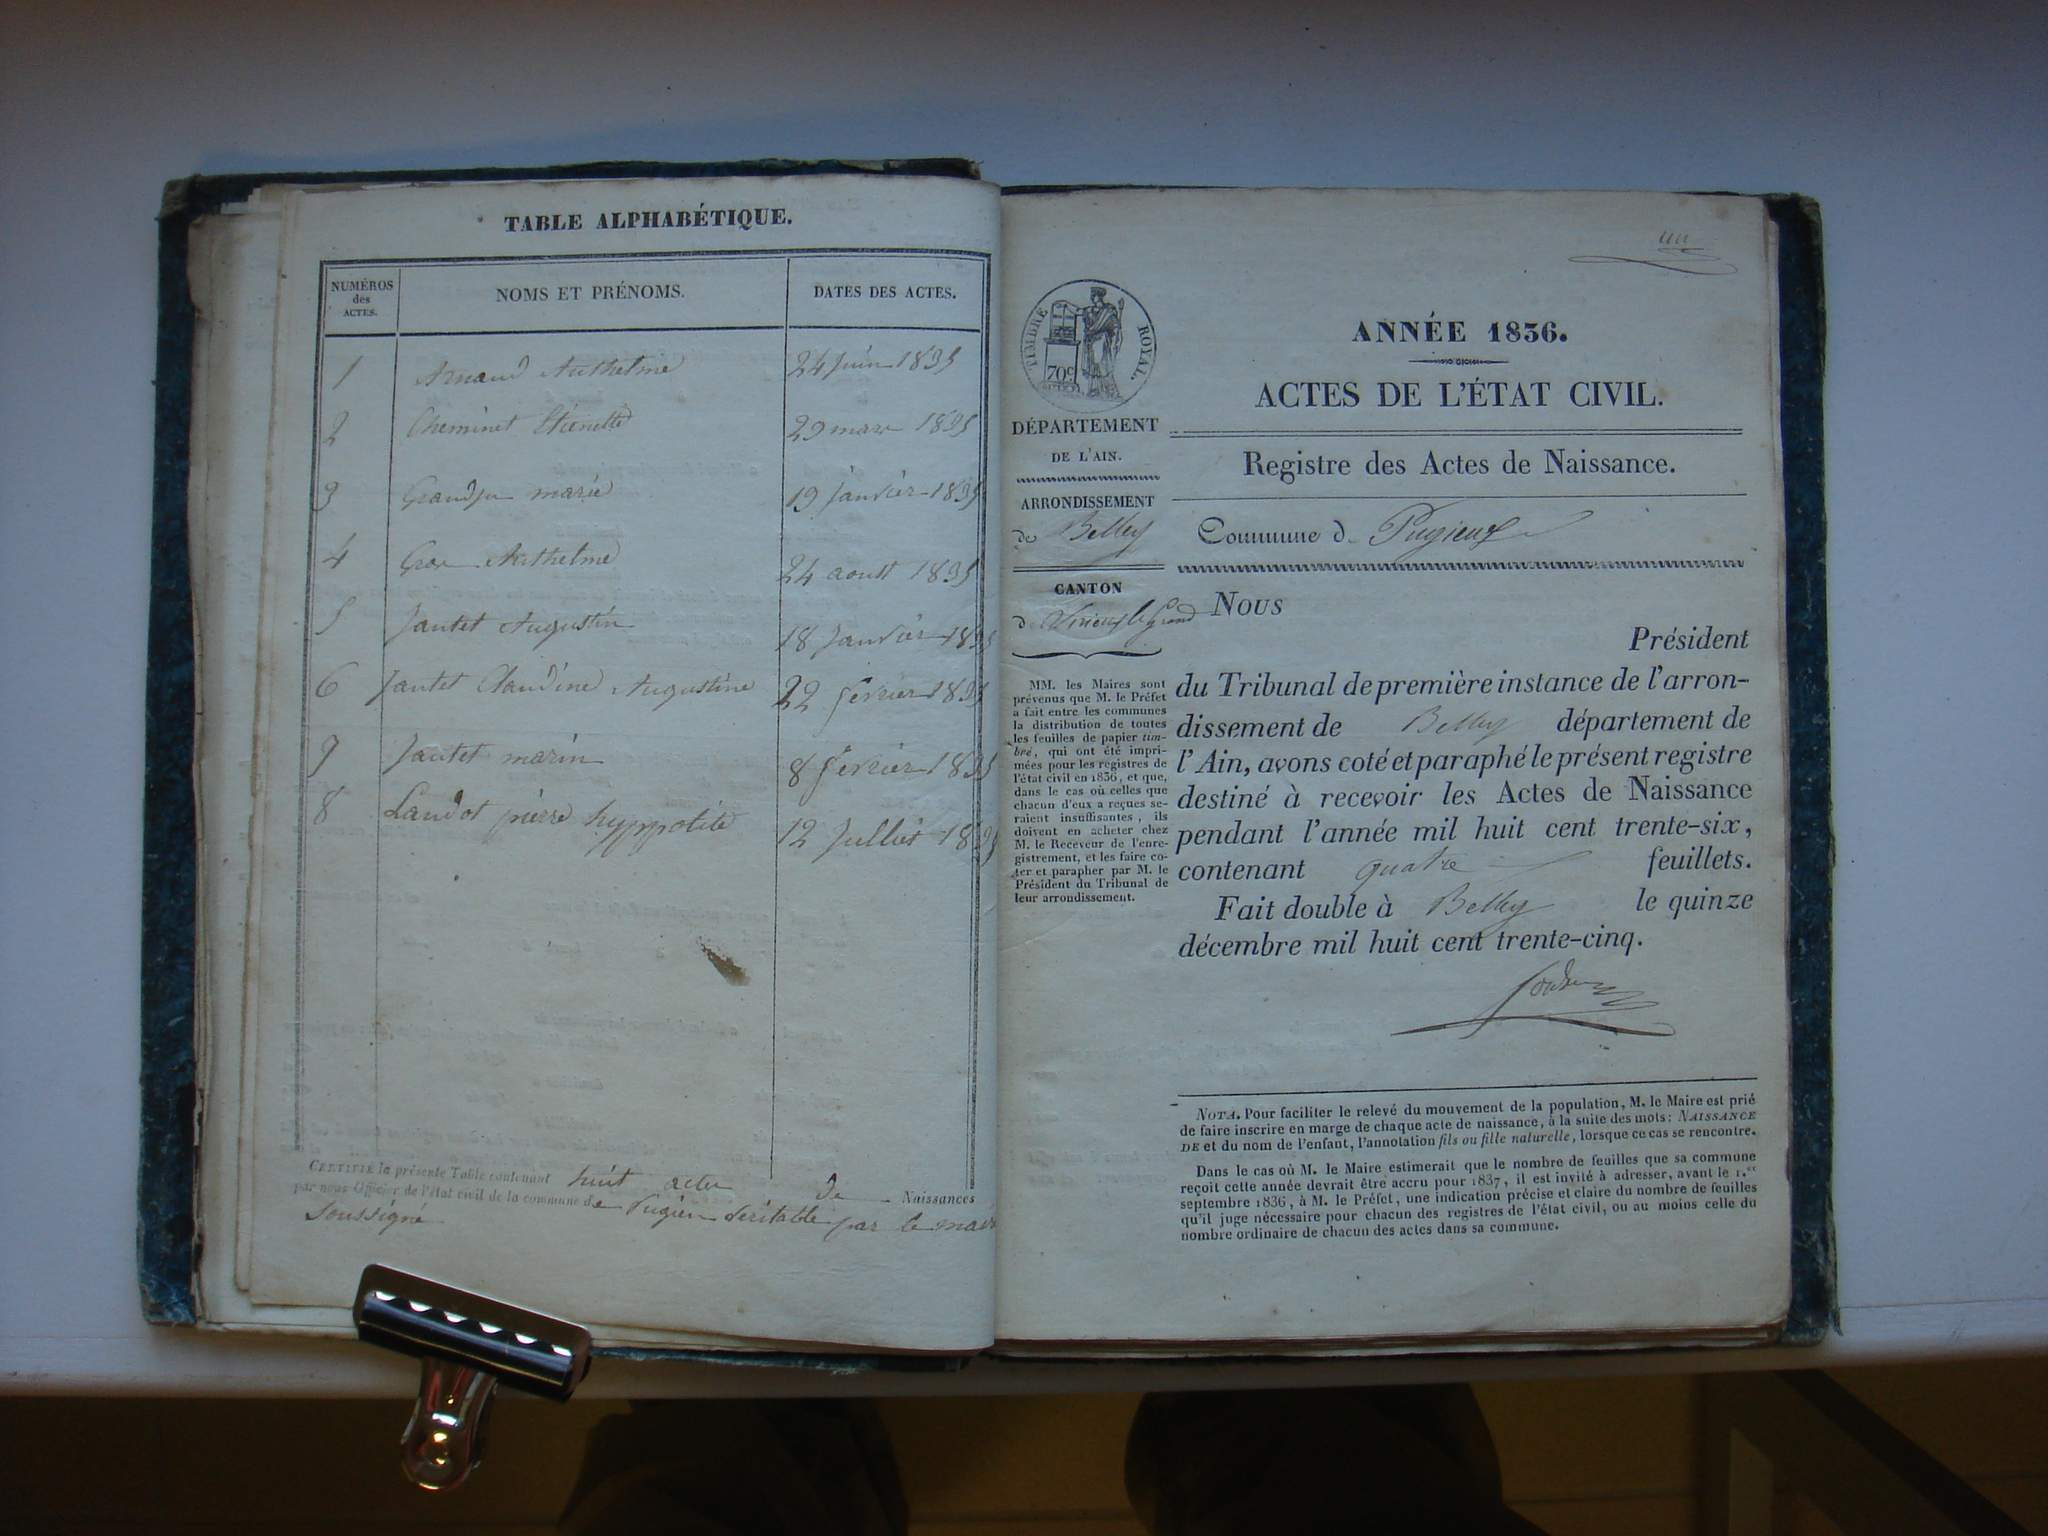 TABLE ALPHABÉTIQUE.
NUMÉROS des ACTES. NOMS ET PRÉNOMS. DATES DES ACTES.
1 Arnaud Anthelme 24 juin 1835
2 Cheminet Etienette 29 mars 1835
3 Grandjen marie 19 janvier 1835
4 Gros Anthelme 24 aoust 1835
5 Jantet Augustin 18 Janvier 1835
6 Jantet Claudine Augustine 22 fevrier 1835
7 Jantet marin 8 fevrier 1835
8 Landot pierre hyppolite 12 Julliet 1835
CERTIFIÉ la présente Table contenant huit actes de Naissances
par nous Officier de l'état civil de la commune de Pugieu veritable par le maire
Soussigné
un
TIMBRE ROYAL.
70c
DÉPARTEMENT
DE L'AIN.
ARRONDISSEMENT
de Belley
CANTON
d Virieux le Grand
MM. les Maires sont
prévenus que M. le Préfet
a fait entre les communes
la distribution de toutes
les feuilles de papier tim-
bré, qui ont été impri-
mées pour les registres de
l'état civil en 1836, et que,
dans le cas où celles que
chacun d'eux a reçues se-
raient insuffisantes, ils
doivent en acheter chez
M. le Receveur de l'enre-
gistrement, et les faire co-
ter et parapher par M. le
Président du Tribunal de
leur arrondissement.
ANNÉE 1836.
ACTES DE L'ÉTAT CIVIL.
Registre des Actes de Naissance.
Commune d Pugieux
NOUS
Président
du Tribunal de première instance de l'arron-
dissement de Belley département de
l'Ain, avons coté et paraphé le présent registre
destiné à recevoir les Actes de Naissance
pendant l'année mil huit cent trente-six,
contenant quatre feuillets.
Fait double à Belley le quinze
décembre mil huit cent trente-cinq.
NOTA. Pour faciliter le relevé du mouvement de la population, M. le Maire est prié
de faire inscrire en marge de chaque acte de naissance, à la suite des mots: NAISSANCE
DE et du nom de l'enfant, l'annotation fils ou fille naturelle, lorsque ce cas se rencontre.
Dans le cas où M. le Maire estimerait que le nombre de feuilles que sa commune
reçoit cette année devrait être accru pour 1837, il est invité à adresser, avant le 1.er
septembre 1836, à M. le Préfet, une indication précise et claire du nombre de feuilles
qu'il juge nécessaire pour chacun des registres de l'état civil, ou au moins celle du
nombre ordinaire de chacun des actes dans sa commune.